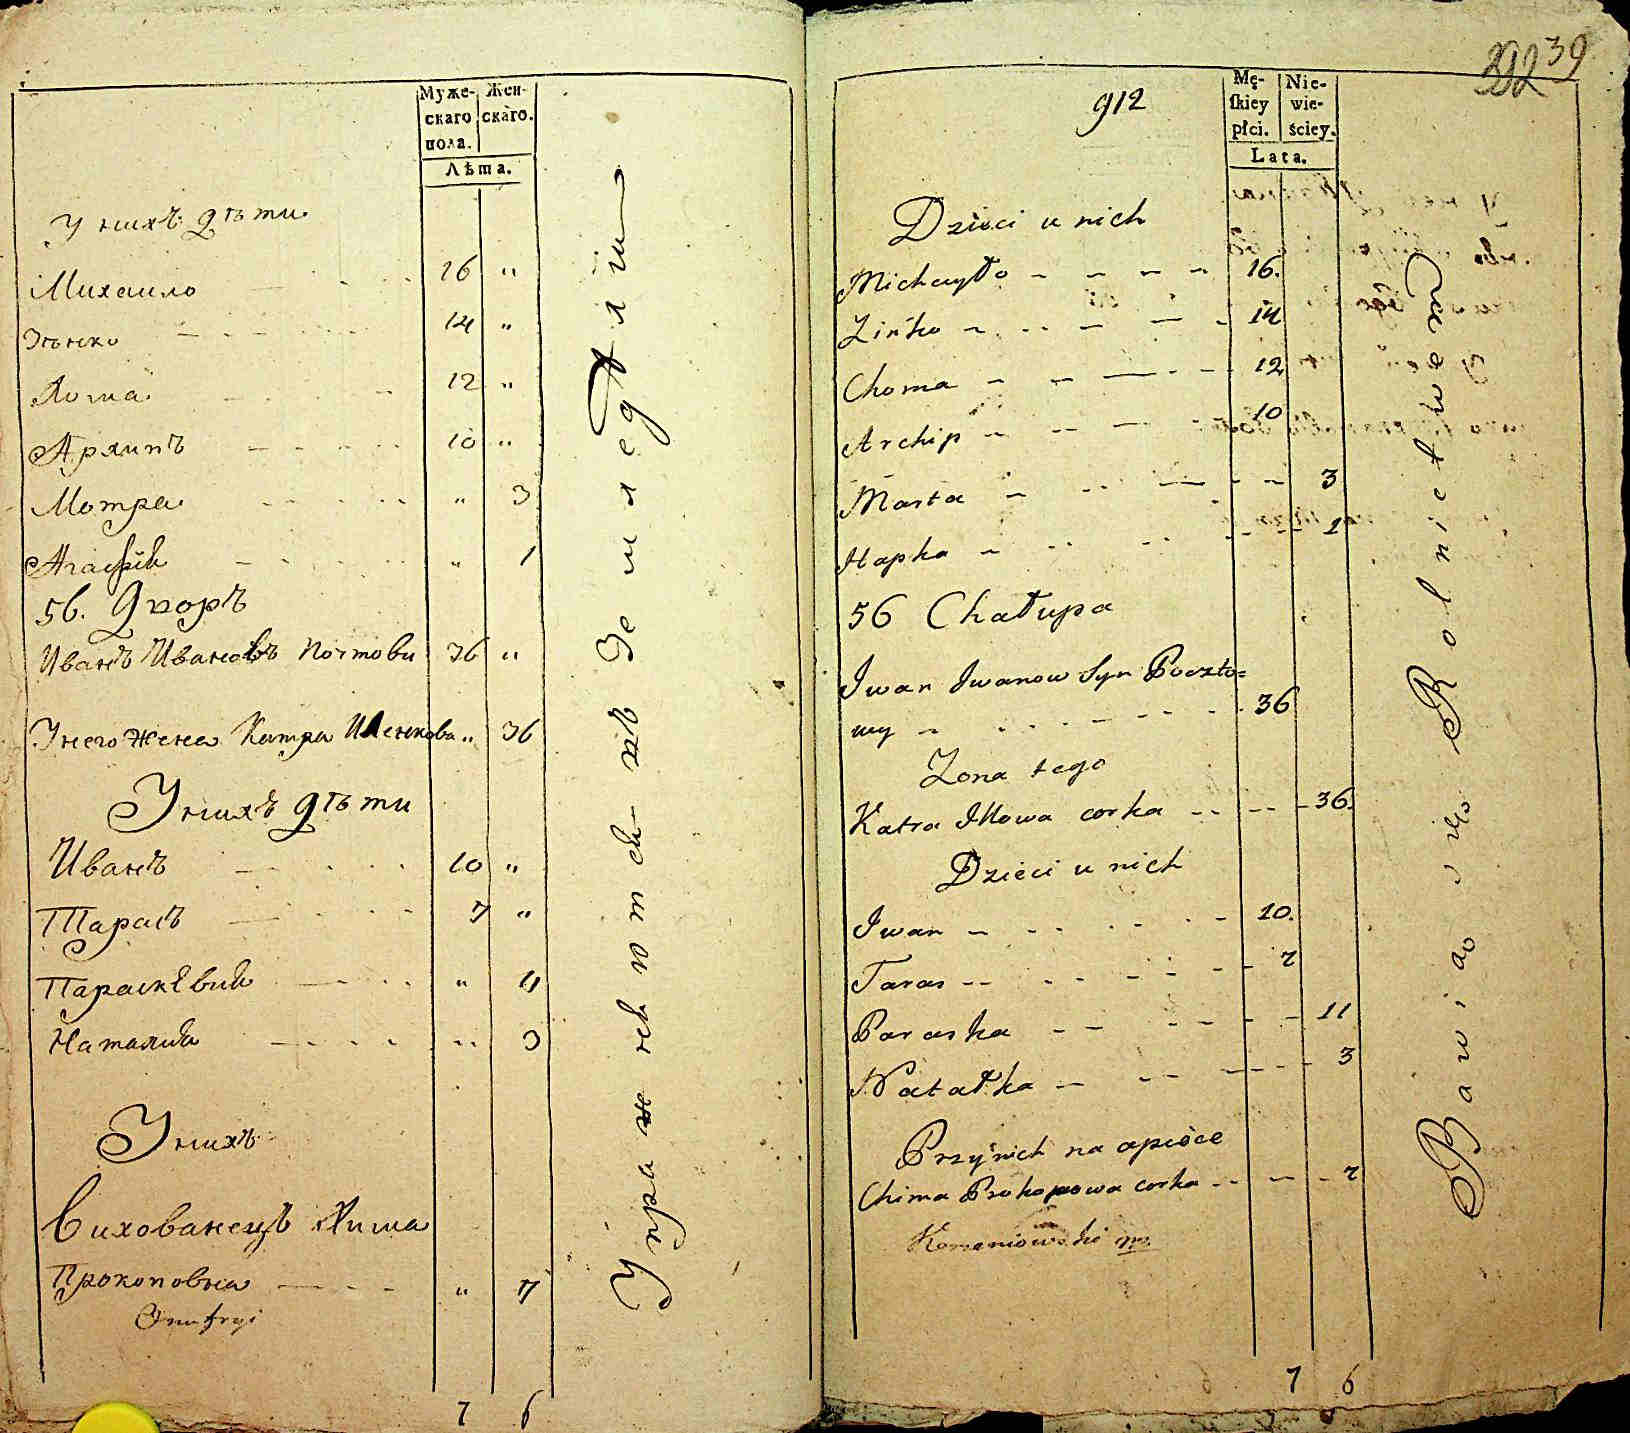 Муже-
скаго
пола.
Жен-
скаго.
Лѣта.
У нихъ дѣти
Михаило 16 "
Зѣнко 14 "
Хома 12 "
Архипъ 10 "
Мотра " 3
Агафія " 1
56. Дворъ
Иванъ Ивановъ Почтови 36 "
У него жена Катра " 36
У нихъ дѣти
Иванъ 10 "
Тарасъ 7 "
Параскевия " 11
Наталия " 3
У нихъ
Вихованецъ Хима
Прокоповна " 7
Onufryi
7 6
Упражняются въ Земледѣлии
39
912
Mę-
ſkiey
płci.
Nie-
wie-
ściey.
Lata.
Dzieci u nich
Michayło 16.
Zińko 14
Choma 12
Archip 10
Marta 3
Hapka 1
56 Chałupa
Iwan Iwanow Syn Poczto=
wy 36
Zona tego
Katra Illowa corka 36.
Dzieci u nich
Iwan 10.
Taras 7
Paraska 11
Natałka 3
Przy nich na opiece
Chima Prokopowa corka 7
7 6
Bawią się Rolnictwem